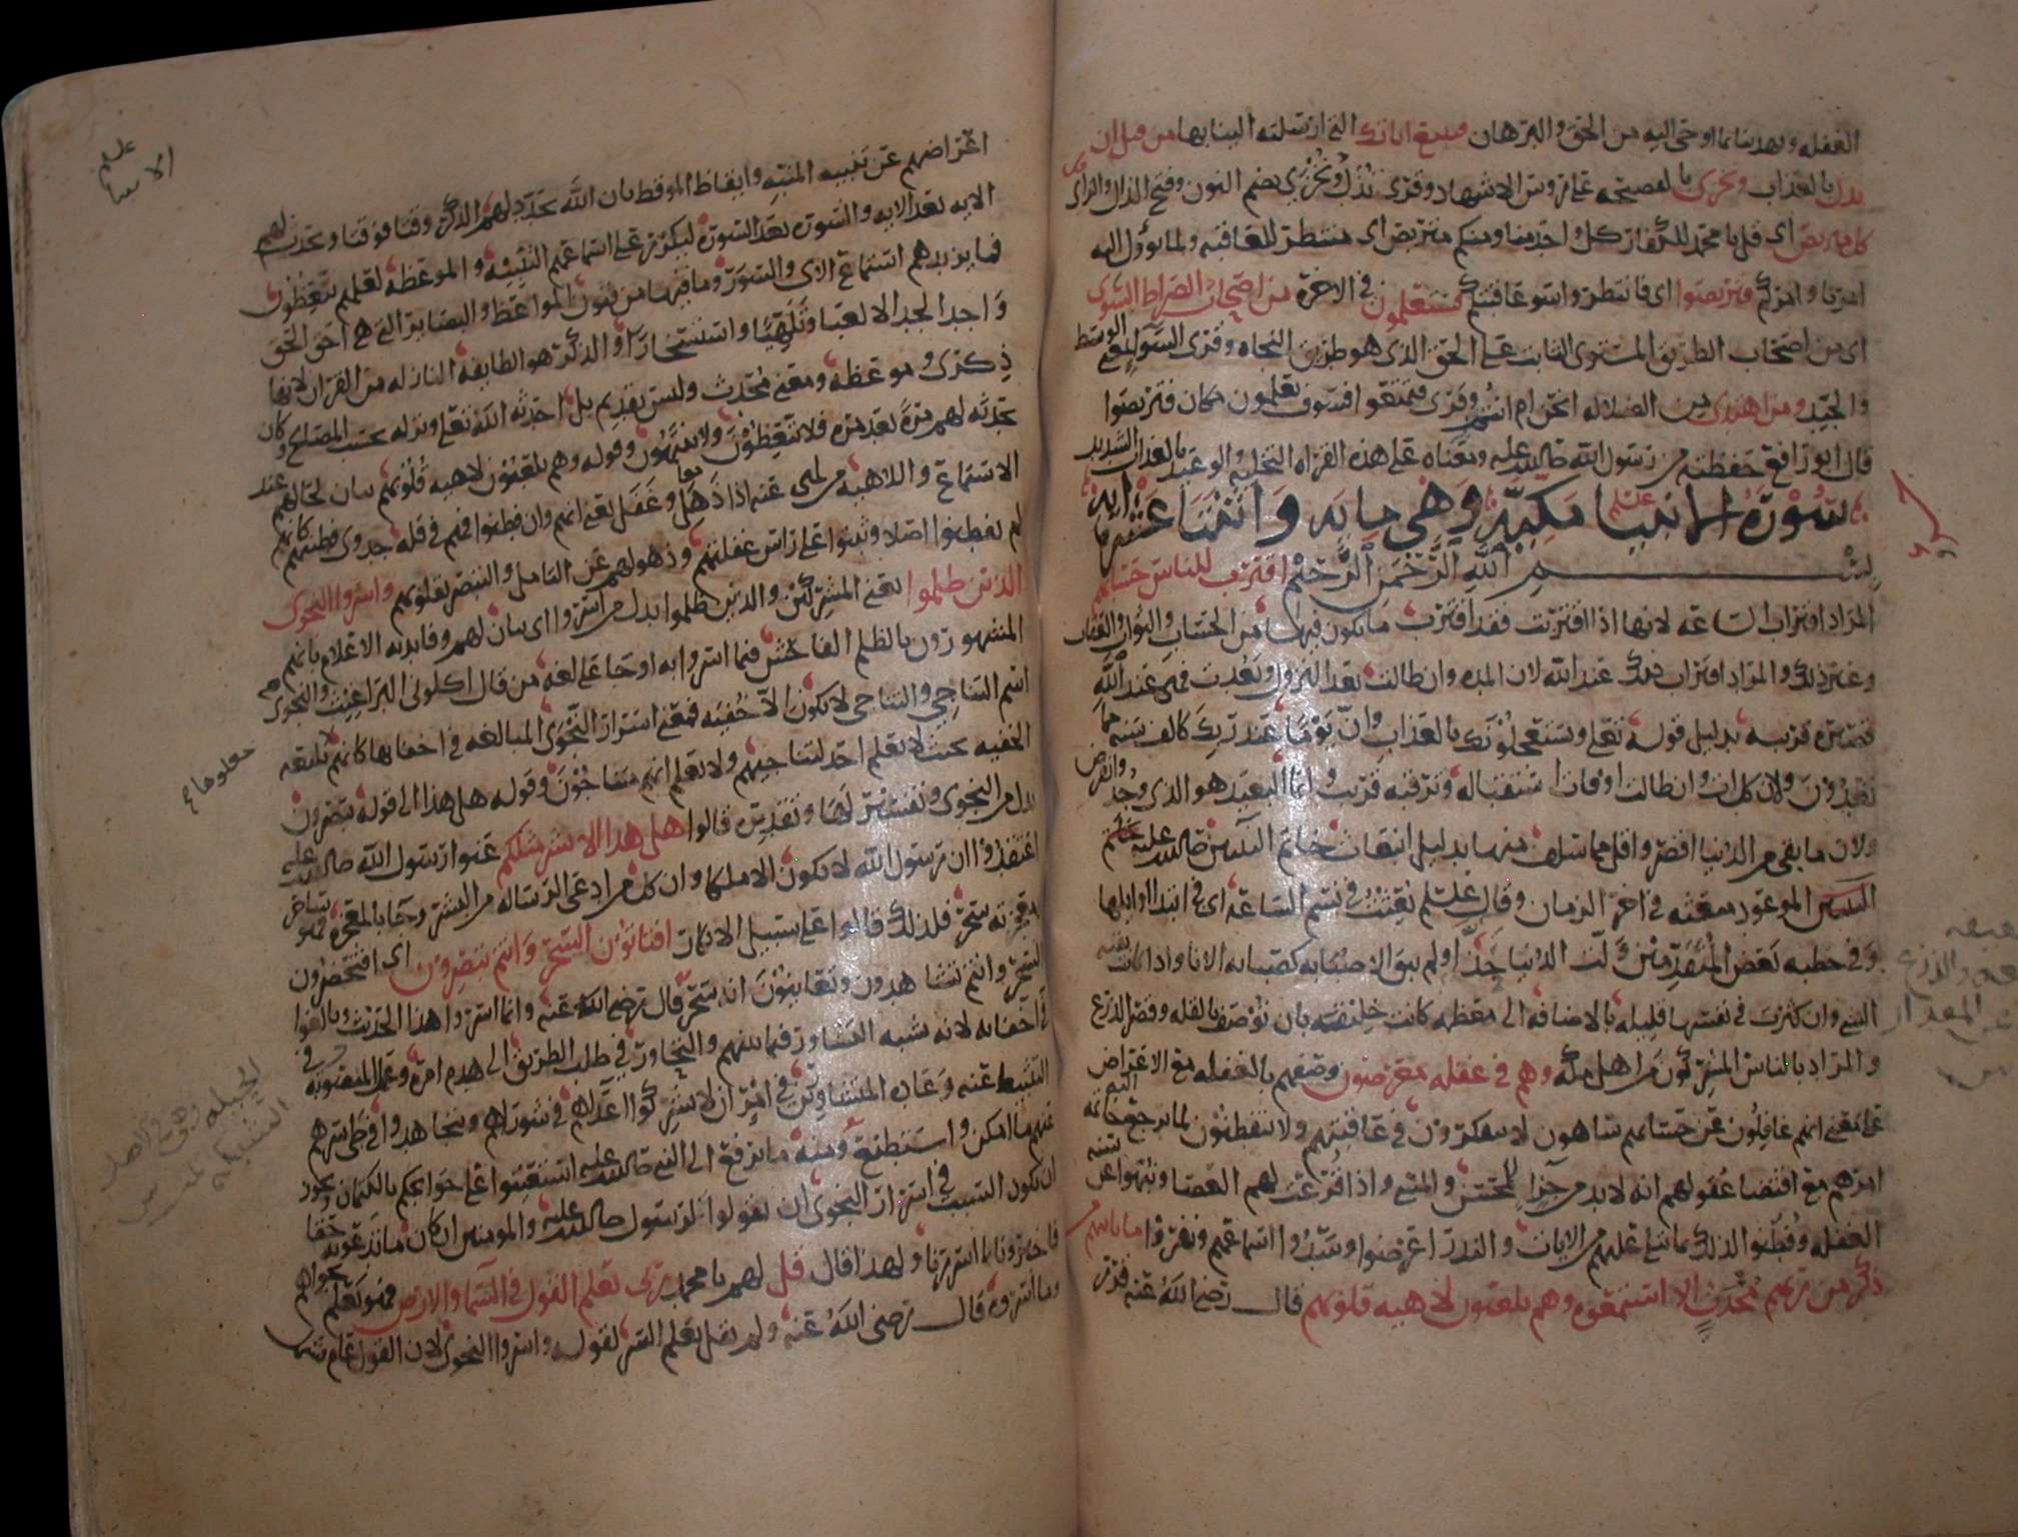 الغفله وبعد بيانا اوحى اليه من الحق والبرهان فنتبع اياتك التي ارسلته الينا بها من قبل ان
نذل بالعذاب ونخزى بالفضيحه على روس الاشهاد وقرى نذل ونخزى بضم النون وفتح الذال والزاى
كل متربص اى قل يا محمد للكفار كل واحد منا ومنكم متربص اى منتظر للعاقبه ولما يؤول اليه
امرنا وامركم فتربصوا اى فانتظروا سو عاقبتكم فستعلمون فى الاخرة من اصحاب الصراط السوى
اى من اصحاب الطريق المستوى الثابت على الحق الذى هو طريق النجاه وقرى السوا بمعنى الوسط
والجيد ومن اهتدى من الضلاله انحن ام انتم وقرى فتمتعوا فسوف تعلمون مكان فتربصوا
قال ابو رافع حفظته من رسول الله صلى الله عليه ومعناه على هذه القراه التخليه والوعيد بالعذاب الشديد
سورة الانبيا عليهم مكيه وهى مايه واثنتا عشرة ايه
بسم الله الرحمن الرحيم اقترب للناس حسابهم
المراد اقتراب الساعه لانها اذا اقتربت فقد اقترب ما يكون فيها من الحساب والثواب والعقاب
وغير ذلك والمراد اقتراب ذلك عند الله لان المده وان طالت بعد النزول وبعدت فهى عند الله
قصيره قريبه بدليل قوله تعلى ويستعجلونك بالعذاب وان يوما عند ربك كالف سنه مما
تعدون ولان كل ات وان طالت اوقات استقباله وترقبه قريب وانما البعيد هو الذى وجد وانقرض
ولان ما بقى من الدنيا اقصر واقل مما سلف منها بدليل انبعاث خاتم النبيين صلى الله عليه
النبيين الموعود مبعثه فى اخر الزمان وقال عليلم بعثت فى نسم الساعه اى فى ابتدا اوايلها
وفى خطبه بعض المتقدمين ولت الدنيا حذا ولم يبق الا صبابه كصبابه الانا واذا كانت بقيه
الشى وان كثرت فى نفسها قليله بالاضافه الى معظمه كانت خليقه بان توصف بالقله وقصر الذرع
والمراد بالناس المشركون من اهل مكه وهم فى غفله معرضون وصفهم بالغفله مع الاعراض
على معنى انهم غافلون عن حسابهم ساهون لا يتفكرون فى عاقبتهم ولا يتفطنون لما يرجع خاتمه
امرهم مع اقتضا عقولهم انه لابد من جزا للمحسن والمسى واذا قرعت لهم العصا ونبهوا عن سنه
الغفله وفطنوا لذلك بما يتلى عليهم من الايات والنذر اعرضوا وسدوا اسماعهم ونفروا ما ياتيهم من
ذكر من ربهم محدث الا استمعوه وهم يلعبون لاهيه قلوبهم قال رضى الله عنه قرر
عليلم
الانبيا
اعراضهم عن تنبيه المنبه وايقاظ الموقظ بان الله يجدد لهم الذكر وقتا فوقتا ويحدث لهم
الايه بعد الايه والسوره بعد السوره ليكرر على اسماعهم التنبيه والموعظه لعلهم يتعظون
فما يزيدهم استماع الاى والسور وما فيها من فنون المواعظ والبصاير التى هى احق الحق
واجد الجد الا لعبا وتلهيا واستسخارا والذكر هو الطايفه النازله من القران لانها
ذكرى وموعظه ومعنى محدث وليس بقديم بل احدثه الله تعلى ونزله بحسب المصالح وكان
تجدده لهم مرة بعد مره فلا يتعظون ولا ينتبهون وقوله وهم يلعبون لاهيه قلوبهم بيان لحالهم عند
الاستماع واللاهيه من لهى عنه اذا ذهل وغفل يعنى انهم وان فطنوا فهم فى قله جدوى فطنهم كانهم
لم يفطنوا اصلا وثبتوا على راس غفلتهم وذهولهم عن التامل والتبصر بقلوبهم واسروا النجوى
الذين ظلموا يعنى المشركين والذين ظلموا بدل من اسروا اى بيان لهم وفايدته الاعلام بانهم هم
المشهورون بالظلم الفاحش فيما اسروا به او جا على لغه من قال اكلونى البراغيث والنجوى
اسم التناجى والتناجى لا يكون الا خفيه فمعنى اسرار النجوى المبالغه فى اخفايها كانهم
الخفيه بحيث لا يعلم احد لتناجيهم ولا يعلم انهم متناجون وقوله هل هذا الى قوله تبصرون
بدل من النجوى وتفسير لها وتقديره قالوا هل هذا الا بشر مثلكم عنوا رسول الله صلى الله عليه
اعتقدوا ان رسول الله لا يكون الا ملكا وان كل من ادعى الرساله من البشر وجا بالمعجزه فهو ساحر
ومعجزته سحر فلذلك قالوا على سبيل الانكار افتاتون السحر وانتم تبصرون اى افتحضرون
السحر وانتم تشاهدون وتعاينون انه سحر قال رضى الله عنه وانما اسروا هذا الحديث وبالغوا
فى اخفايه لانه شبه التشاور فيما بينهم والتحاور فى طلب الطريق الى هدم امره وعمل المنصوبه فى
التثبيط عنه وعاده المتشاورين فى امر ان لا يشركوا اعداهم فى شوراهم ويتجاهدوا فى طى سرهم
عنهم ما امكن واستطيع ومنه ما يرفع الى النبى صلى الله عليه استعينوا على حوايجكم بالكتمان ويجوز
ان يكون السبب فى اسرار النجوى ان يقولوا لرسول صلى الله عليه والمومنين ان كان ما تدعونه حقا
فاخبرونا بما اسررنا ولهذا قال قل لهم يا محمد ربى يعلم القول فى السما والارض فهو يعلم نجواهم
وما اسروه قال رضى الله عنه ولم يقل يعلم السر لقوله واسروا النجوى لان القول عام يشمل